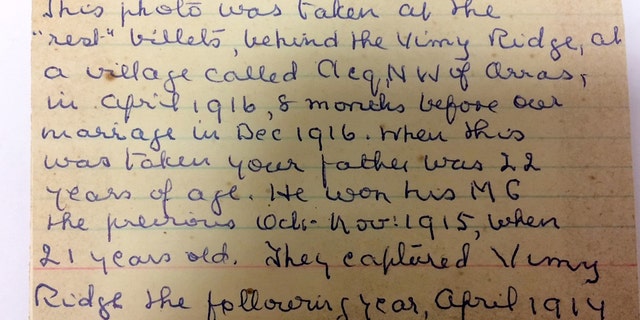 This photo was taken at the
"rest" billets, behind the Vimy Ridge, at
a village called Acq, NW of Arras,
in April 1916, 8 months before our
marriage in Dec 1916. When this
was taken your father was 22
years of age. He won his M C
the previous Oct-Nov: 1915, when
21 years old. They captured Vimy
Ridge the following year, April 1917